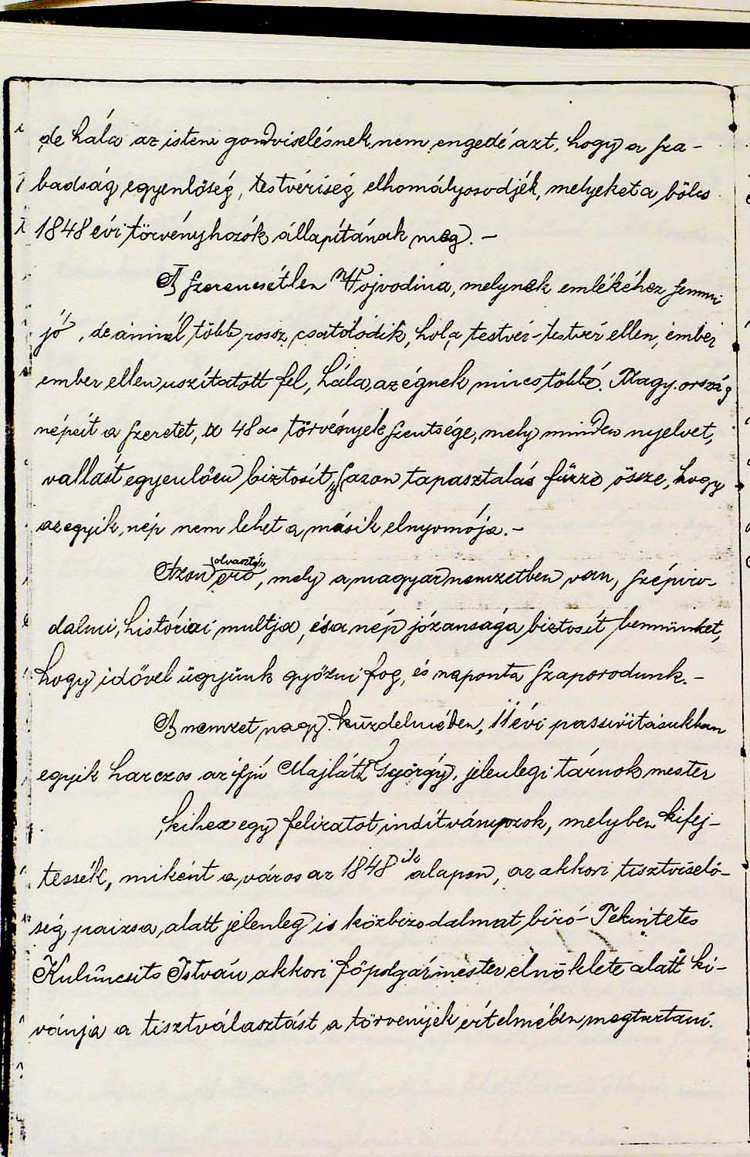 de hála az isteni gondviselésnek nem engedé azt, hogy a sza-
badság egyenlőség, testvériség elhomályosodjék, melyeket a bölcs
1848 évi törvényhozók állapítának meg. -
A szerencsétlen Vojvodina, melynek emlékéhez semmi
jó, de annál több rossz csatolódik, hola testvér-testvér ellen, ember
ember ellen uszítatott fel, hála az égnek nincs többé. Magy. ország
népeit a szeretet, a 48as törvények szentsége, mely minden nyelvet,
vallást egyenlően biztosít, s azon tapasztalás fűzze össze, hogy
az egyik nép nem lehet a másik elnyomója. -
Azon olvasztó erő, mely a magyar nemzetben van, szépiro-
dalmi, históriai multja, és a nép józansága biztosít bennünket,
hogy idővel ügyünk győzni fog, és naponta szaporodunk. -
A nemzet nagy küzdelmében, 11 évi passivitásukban
egyik harczos az ifjú Majláth György, jelenlegi tárnokmester
kihez egy feliratot indítványozok, melyben kifej-
tessék, miként a város az 1848ik alapon, az akkori tisztviselő-
ség paizsa alatt jelenleg is közbizodalmat bíró Tekintetes
Kulúncsits István akkori főpolgármester elnöklete alatt kí-
vánja a tisztválasztást a törvények értelmében megtartani.